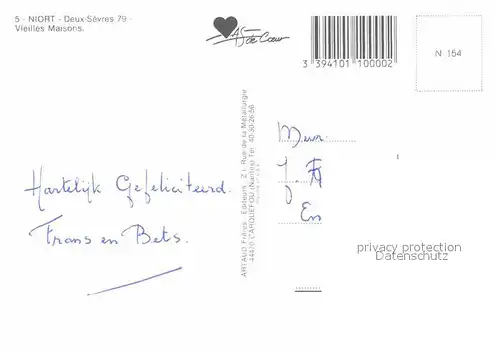 5 - NIORT - Deux-Sèvres 79 -
Vieilles Maisons.
As de Cœur
3 394101 100002
N 154
ARTAUD Frères - Éditeurs - Z.I. Rue de la Métallurgie
44470 CARQUEFOU (Nantes) Tél. 40-30-26-56
Hartelijk Gefeliciteerd.
Frans en Bets.
Mevr.
J.
En
privacy protection
Datenschutz